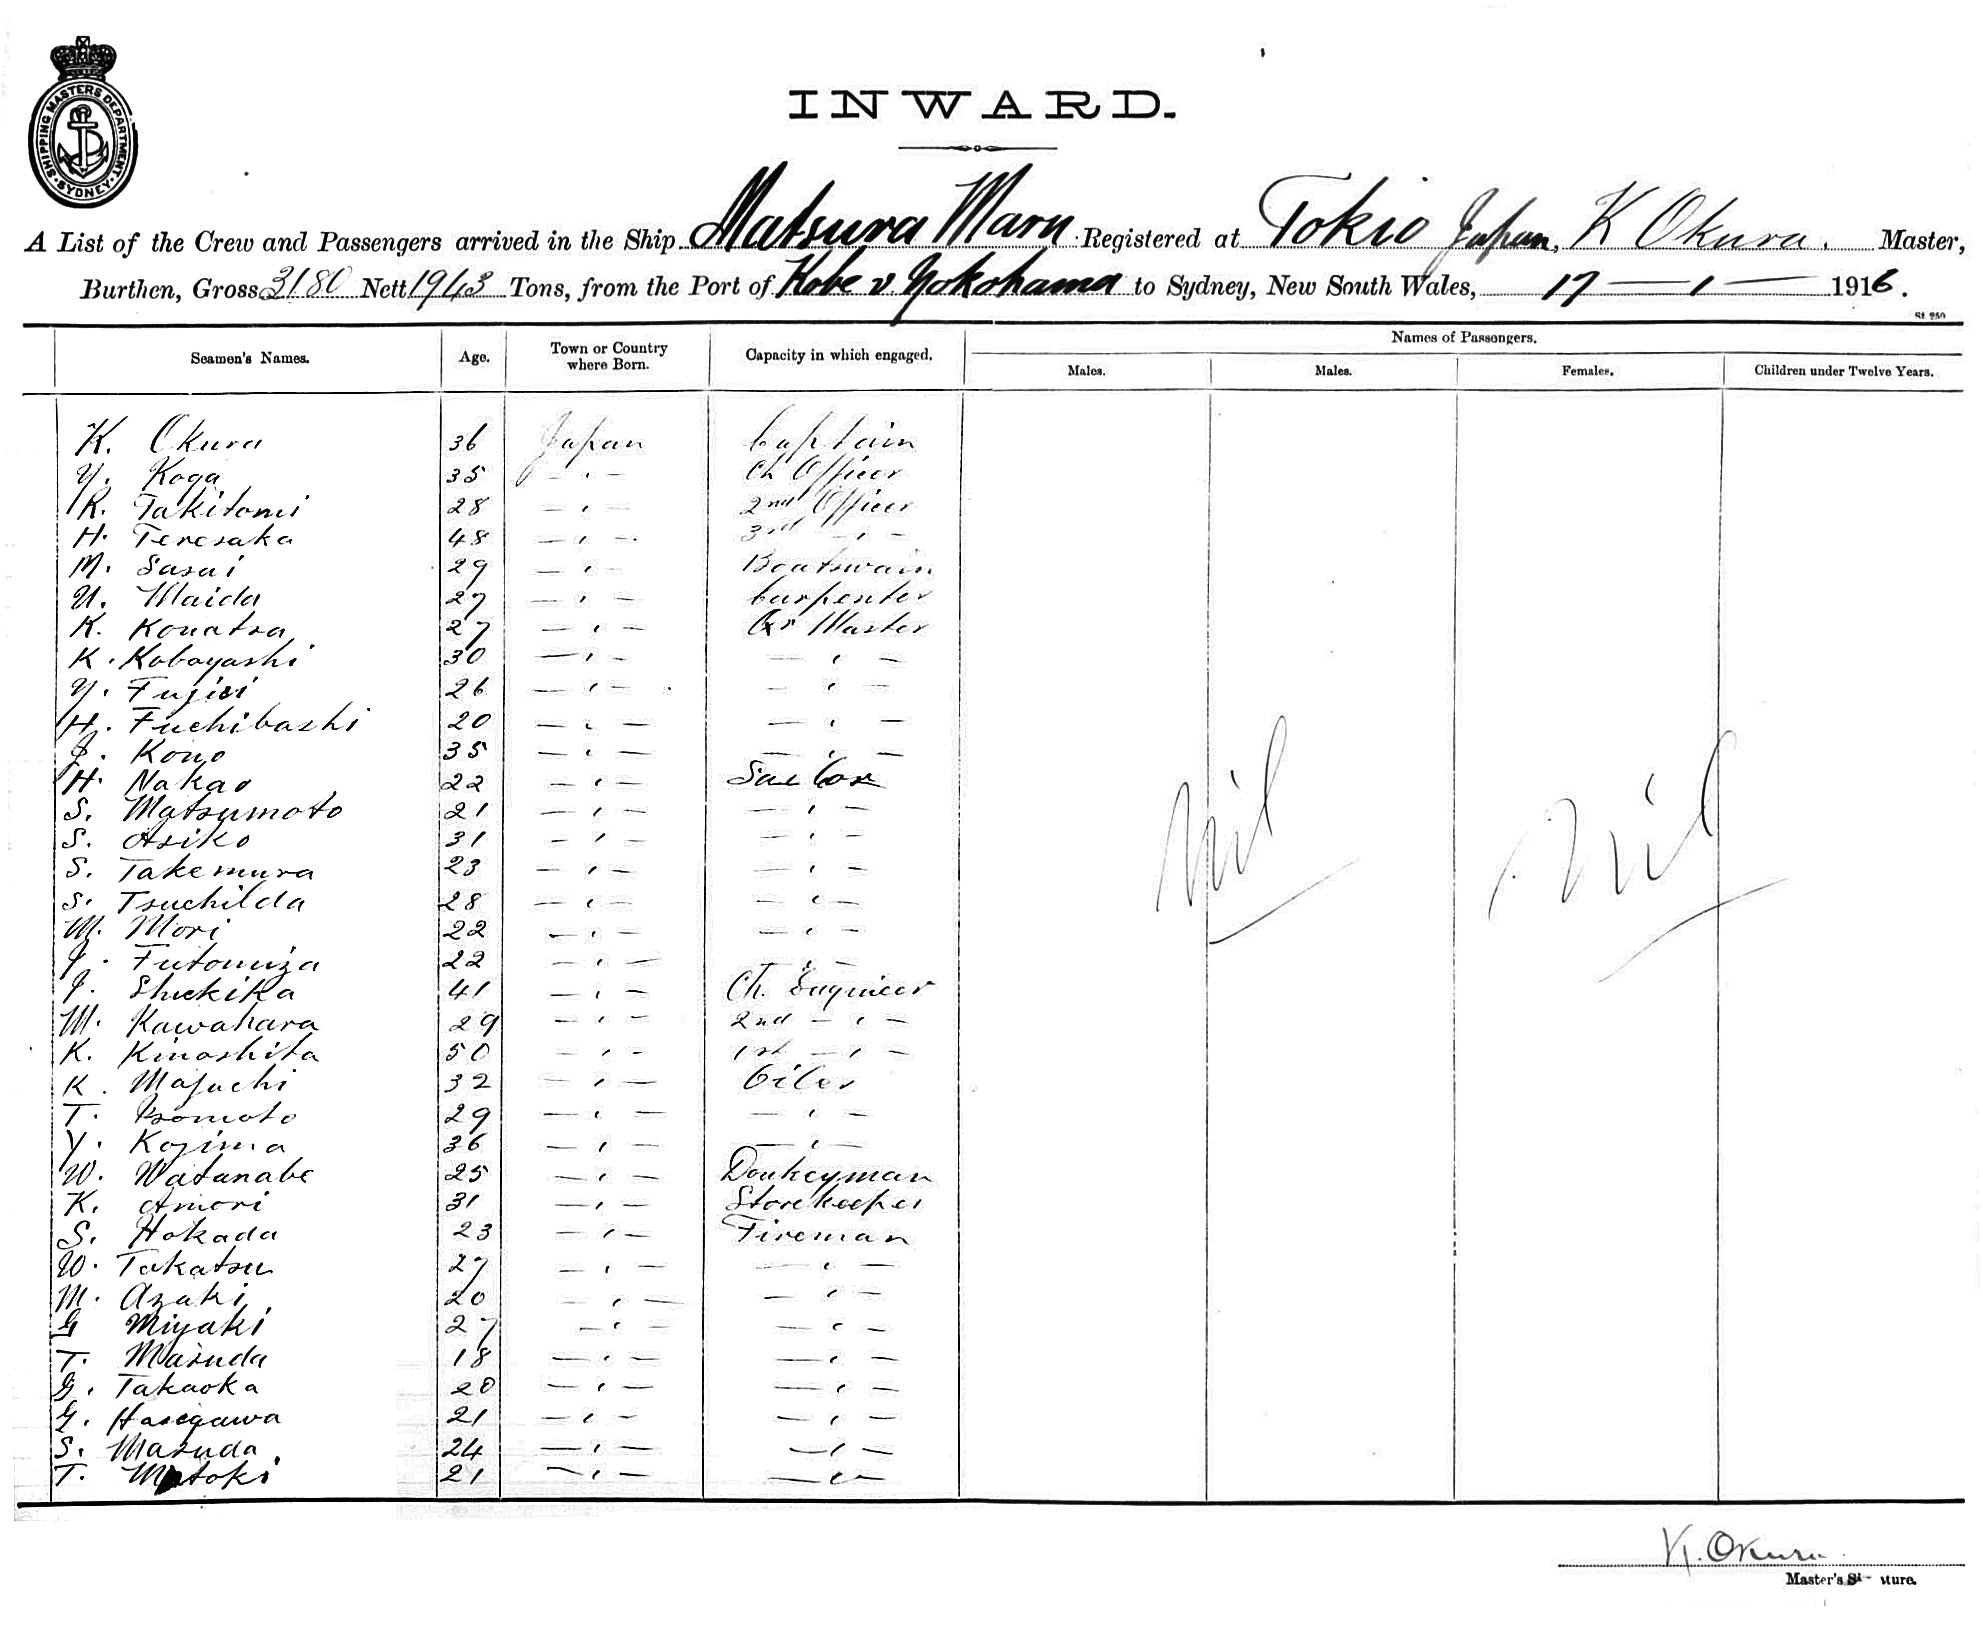 SHIPPING MASTERS DEPARTMENT
SYDNEY
INWARD.
A List of the Crew and Passengers arrived in the Ship Matsura Maru Registered at Tokio Japan, K Okura. Master,
Burthen, Gross 3180 Nett 1943 Tons, from the Port of Kobe v. Yokohama to Sydney, New South Wales, 17 — 1 — 1916.
St. 250
Seamen's Names. Age. Town or Country where Born. Capacity in which engaged. Names of Passengers.
Males. Males. Females. Children under Twelve Years.
K. Okura 36 Japan Captain
Y. Koga 35 — " — Ch Officer
R. Takitomi 28 — " — 2nd Officer
H. Teresaka 48 — " — 3rd — " —
M. Sasai 29 — " — Boatswain
U. Maida 27 — " — Carpenter
K. Konatsa 27 — " — Qr Master
K. Kobayashi 30 — " — — " —
Y. Fujivi 26 — " — — " —
H. Fuchibashi 20 — " — — " —
J. Kono 35 — " — — " —
H. Nakao 22 — " — Sailor
S. Matsumoto 21 — " — — " —
S. Asiko 31 — " — — " —
S. Takemura 23 — " — — " —
S. Tsuchilda 28 — " — — " —
M. Mori 22 — " — — " —
J. Futomiza 22 — " — — " —
J. Shukika 41 — " — Ch. Engineer
M. Kawahara 29 — " — 2nd — " —
K. Kinoshita 50 — " — 1st — " —
K. Majuchi 32 — " — Oiler
T. Isomoto 29 — " — — " —
Y. Kojima 36 — " — — " —
W. Watanabe 25 — " — Donkeyman
K. Amori 31 — " — Storekeeper
S. Hokada 23 — " — Fireman
W. Takatsu 27 — " — — " —
M. Azaki 20 — " — — " —
G Miyaki 27 — " — — " —
T. Masuda 18 — " — — " —
G. Takaoka 20 — " — — " —
G. Hasegawa 21 — " — — " —
S. Masuda 24 — " — — " —
T. Motoki 21 — " — — " —
Nil Nil
K. Okura
Master's Si ture.